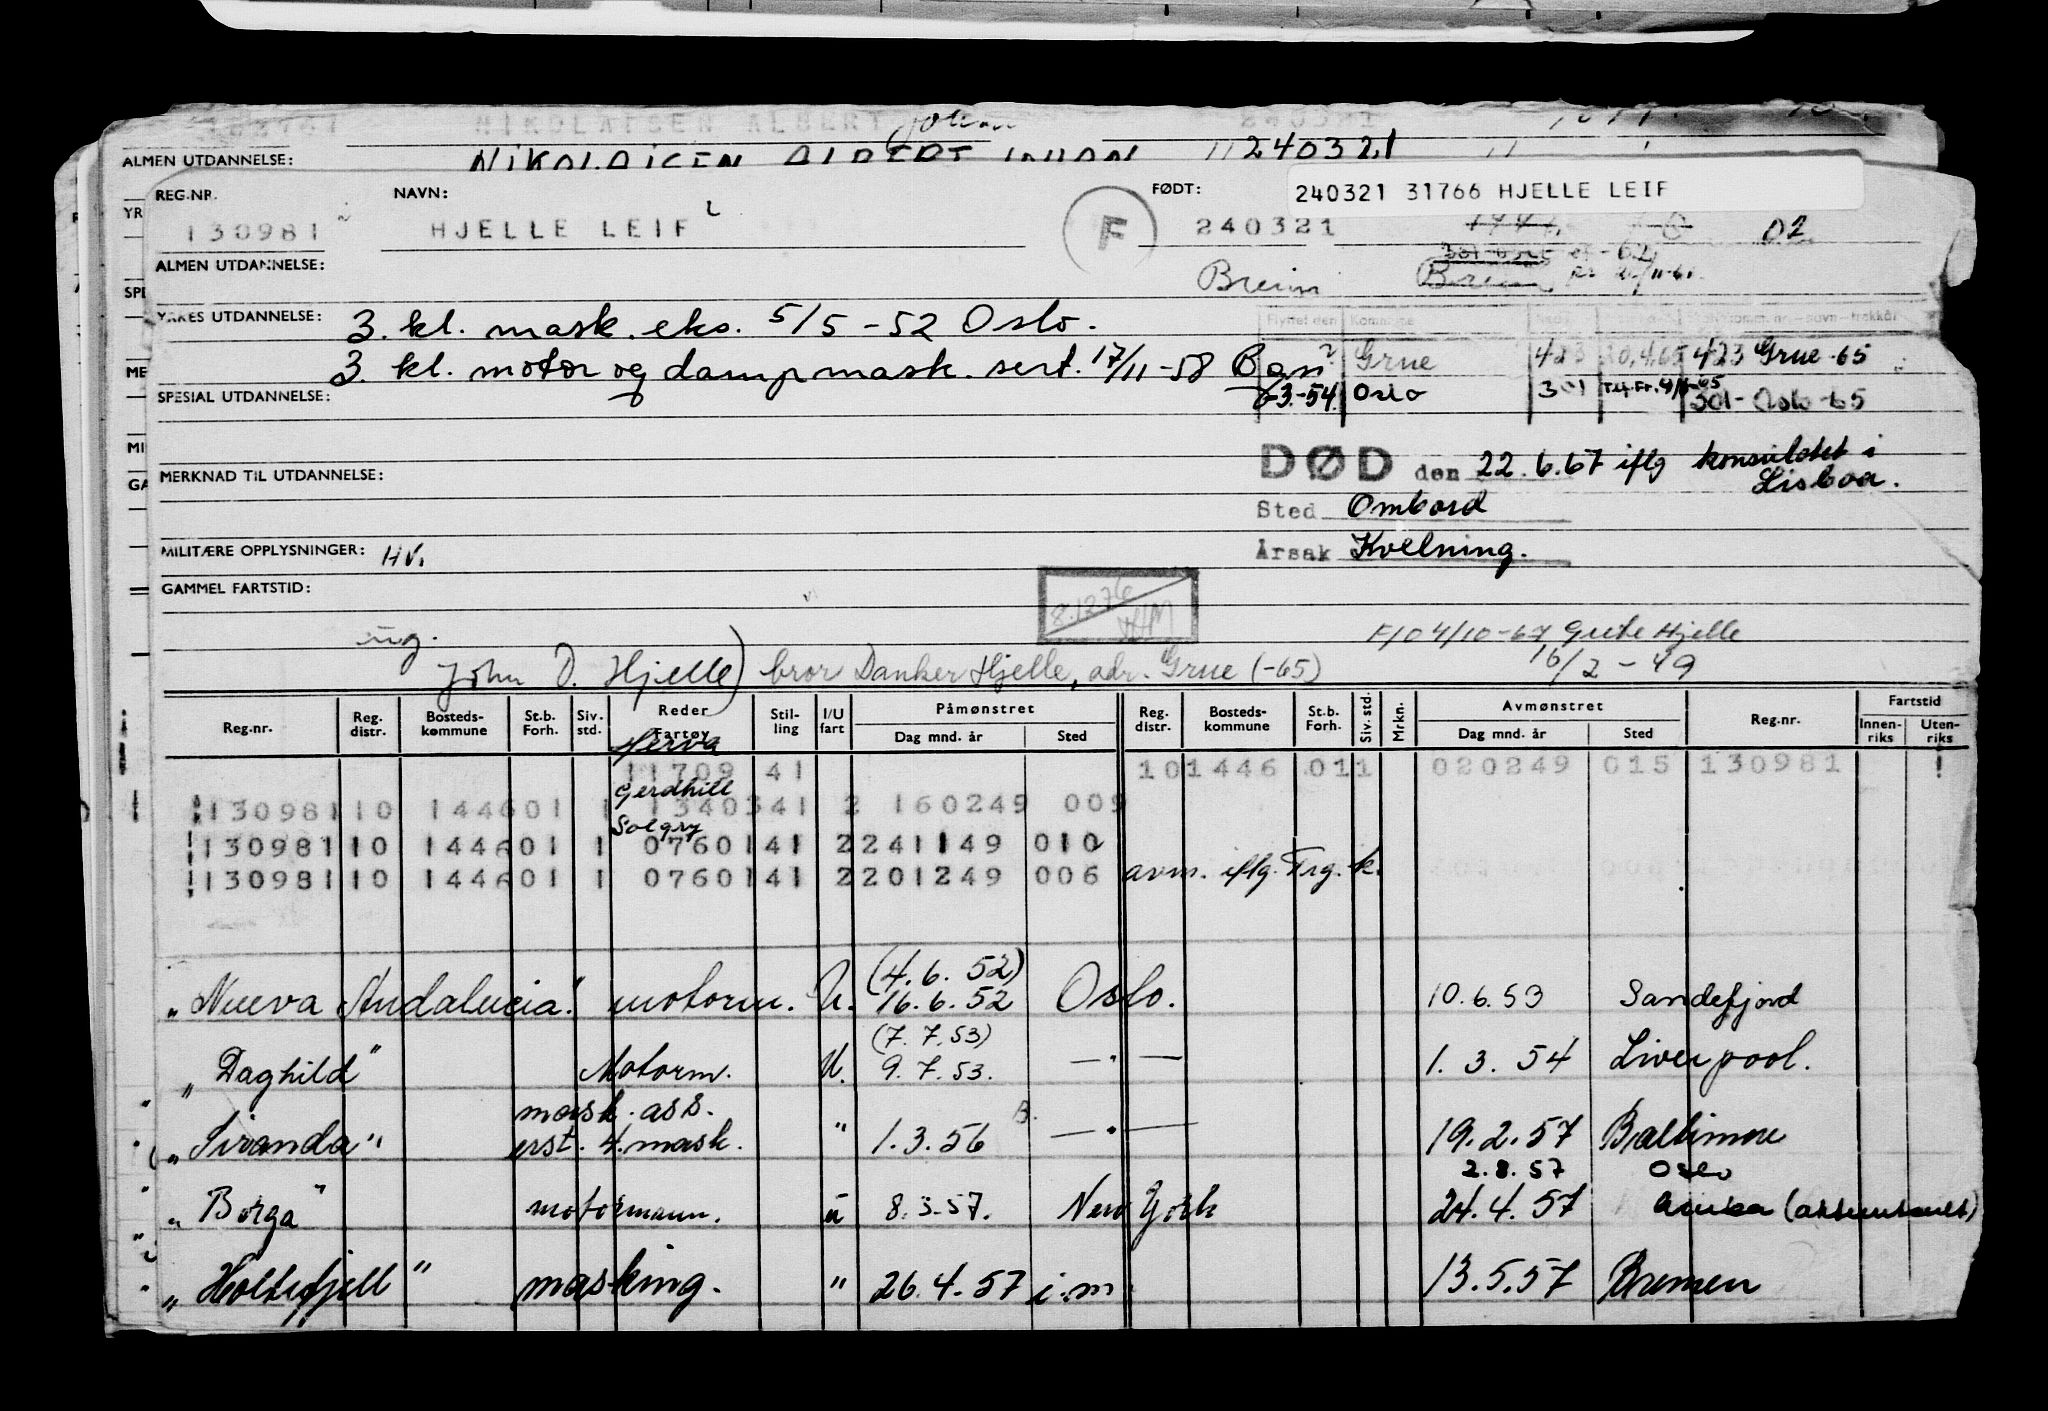 NIKOLAISEN ALBERT Johan 240321
ALMEN UTDANNELSE: NIKOLAISEN ALBERT JOHAN 240321
REG.NR. NAVN: FØDT: 240321 31766 HJELLE LEIF
130981 HJELLE LEIF F 240321 02
ALMEN UTDANNELSE: Breim
YRKES UTDANNELSE: 3. kl. mask. eks. 5/5 -52 Oslo.
Flyttet den Kommune
3. kl. motor og dampmask. sert. 17/11-58 Bgn ? Grue 423 20.4.65 423 Grue -65
SPESIAL UTDANNELSE: -3.-54. Oslo 301 301- Oslo -65
DØD den 22.6.67 iflg konsulatet i
MERKNAD TIL UTDANNELSE: Lisboa.
Sted Ombord
MILITÆRE OPPLYSNINGER: HV. Årsak Kvelning.
GAMMEL FARTSTID: 8.1276 HM
ug. F/O 4/10-67 Grete Hjelle
John D. Hjelle) bror Danker Hjelle, adr. Grue (-65) 16/2 - 49
Reg.nr. Reg. distr. Bosteds-kommune St.b. Forh. Siv. std. Reder Fartøy Stilling I/U fart Påmønstret Dag mnd. år Sted Reg. distr. Bosteds-kommune St.b. Forh. Siv. std. Mrkn. Avmønstret Dag mnd. år Sted Reg.nr. Fartstid Innen-riks Uten-riks
Herva
11709 41 101446 011 020249 015 130981
Gerdhill
130981 10 144601 1 1340341 2 160249 009
Solgry
130981 10 144601 1 0760141 2 241149 010
130981 10 144601 1 0760141 2 201249 006 avm. iflg. Trg.k.
(4.6.52)
"Nueva Andalucia" motorm. U. 16.6.52 Oslo. 10.6.53 Sandefjord
(7.7.53)
"Daghild" Motorm. U. 9.7.53. —"— 1.3.54 Liverpool.
mask. ass.
"Siranda" erst. 4. mask. " 1.3.56 —"— 19.2.57 Baltimore
2.8.57 Oslo
"Borga" motormann. u 8.3.57. New York 24.4.57
"Holtefjell" masking. " 26.4.57 i.m 13.5.57 Bremen